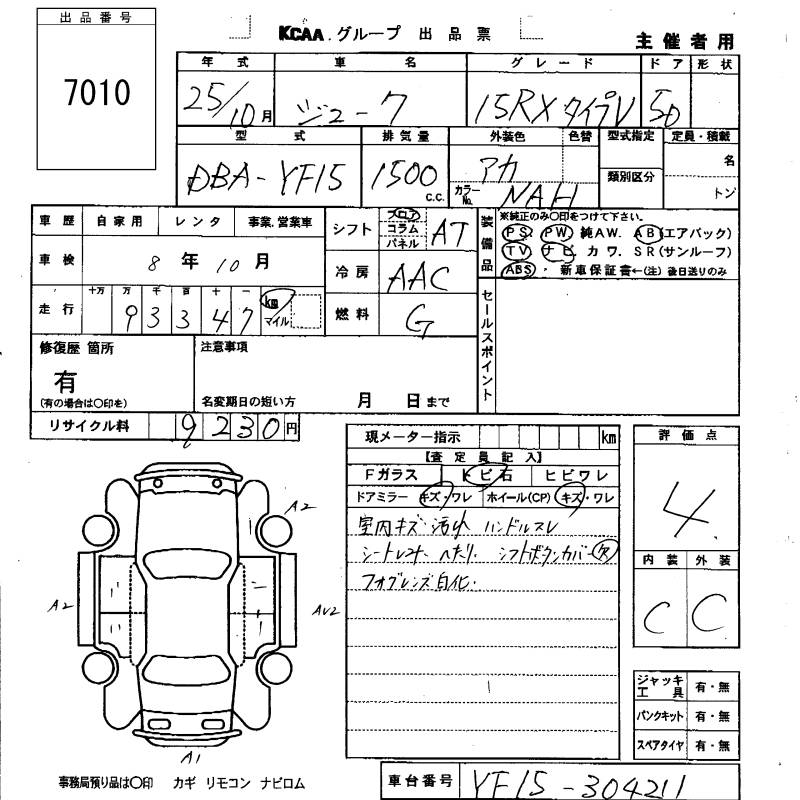 出品番号
7010
KCAA.グループ 出品票
主催者用
年式 車名 グレード ドア 形状
25/10月 ジューク 15RX タイプV 5D
型式 排気量 外装色 色替 型式指定 定員・積載
DBA-YF15 1500 C.C. アカ 類別区分 名
カラーNo. NAH トン
車歴 自家用 レンタ 事業.営業車
シフト フロア コラム パネル AT
装備品 ※純正のみ○印をつけて下さい。
PS. PW 純AW. AB(エアバック)
TV ナビ カワ. SR(サンルーフ)
ABS・新車保証書←(注)後日送りのみ
車検 8年10月
冷房 AAC
走行 十万 万 千 百 十 一
93347 km マイル
燃料 G
セールスポイント
修復歴 箇所
有
(有の場合は○印を)
注意事項
名変期日の短い方 月 日まで
リサイクル料 9230円
現メーター指示 km
【査定員記入】
Fガラス トビ石 ヒビワレ
ドアミラー キズ・ワレ ホイール(CP) キズ・ワレ
室内キズ・汚れ ハンドルスレ
シートレスナー ヘタリ. シフトボタンカバー欠
フォグレンズ白化.
評価点
4
内装 外装
C C
A2
A2
AU2
A1
ジャッキ工具 有・無
パンクキット 有・無
スペアタイヤ 有・無
事務局預り品は○印 カギ リモコン ナビロム
車台番号 YF15-304211